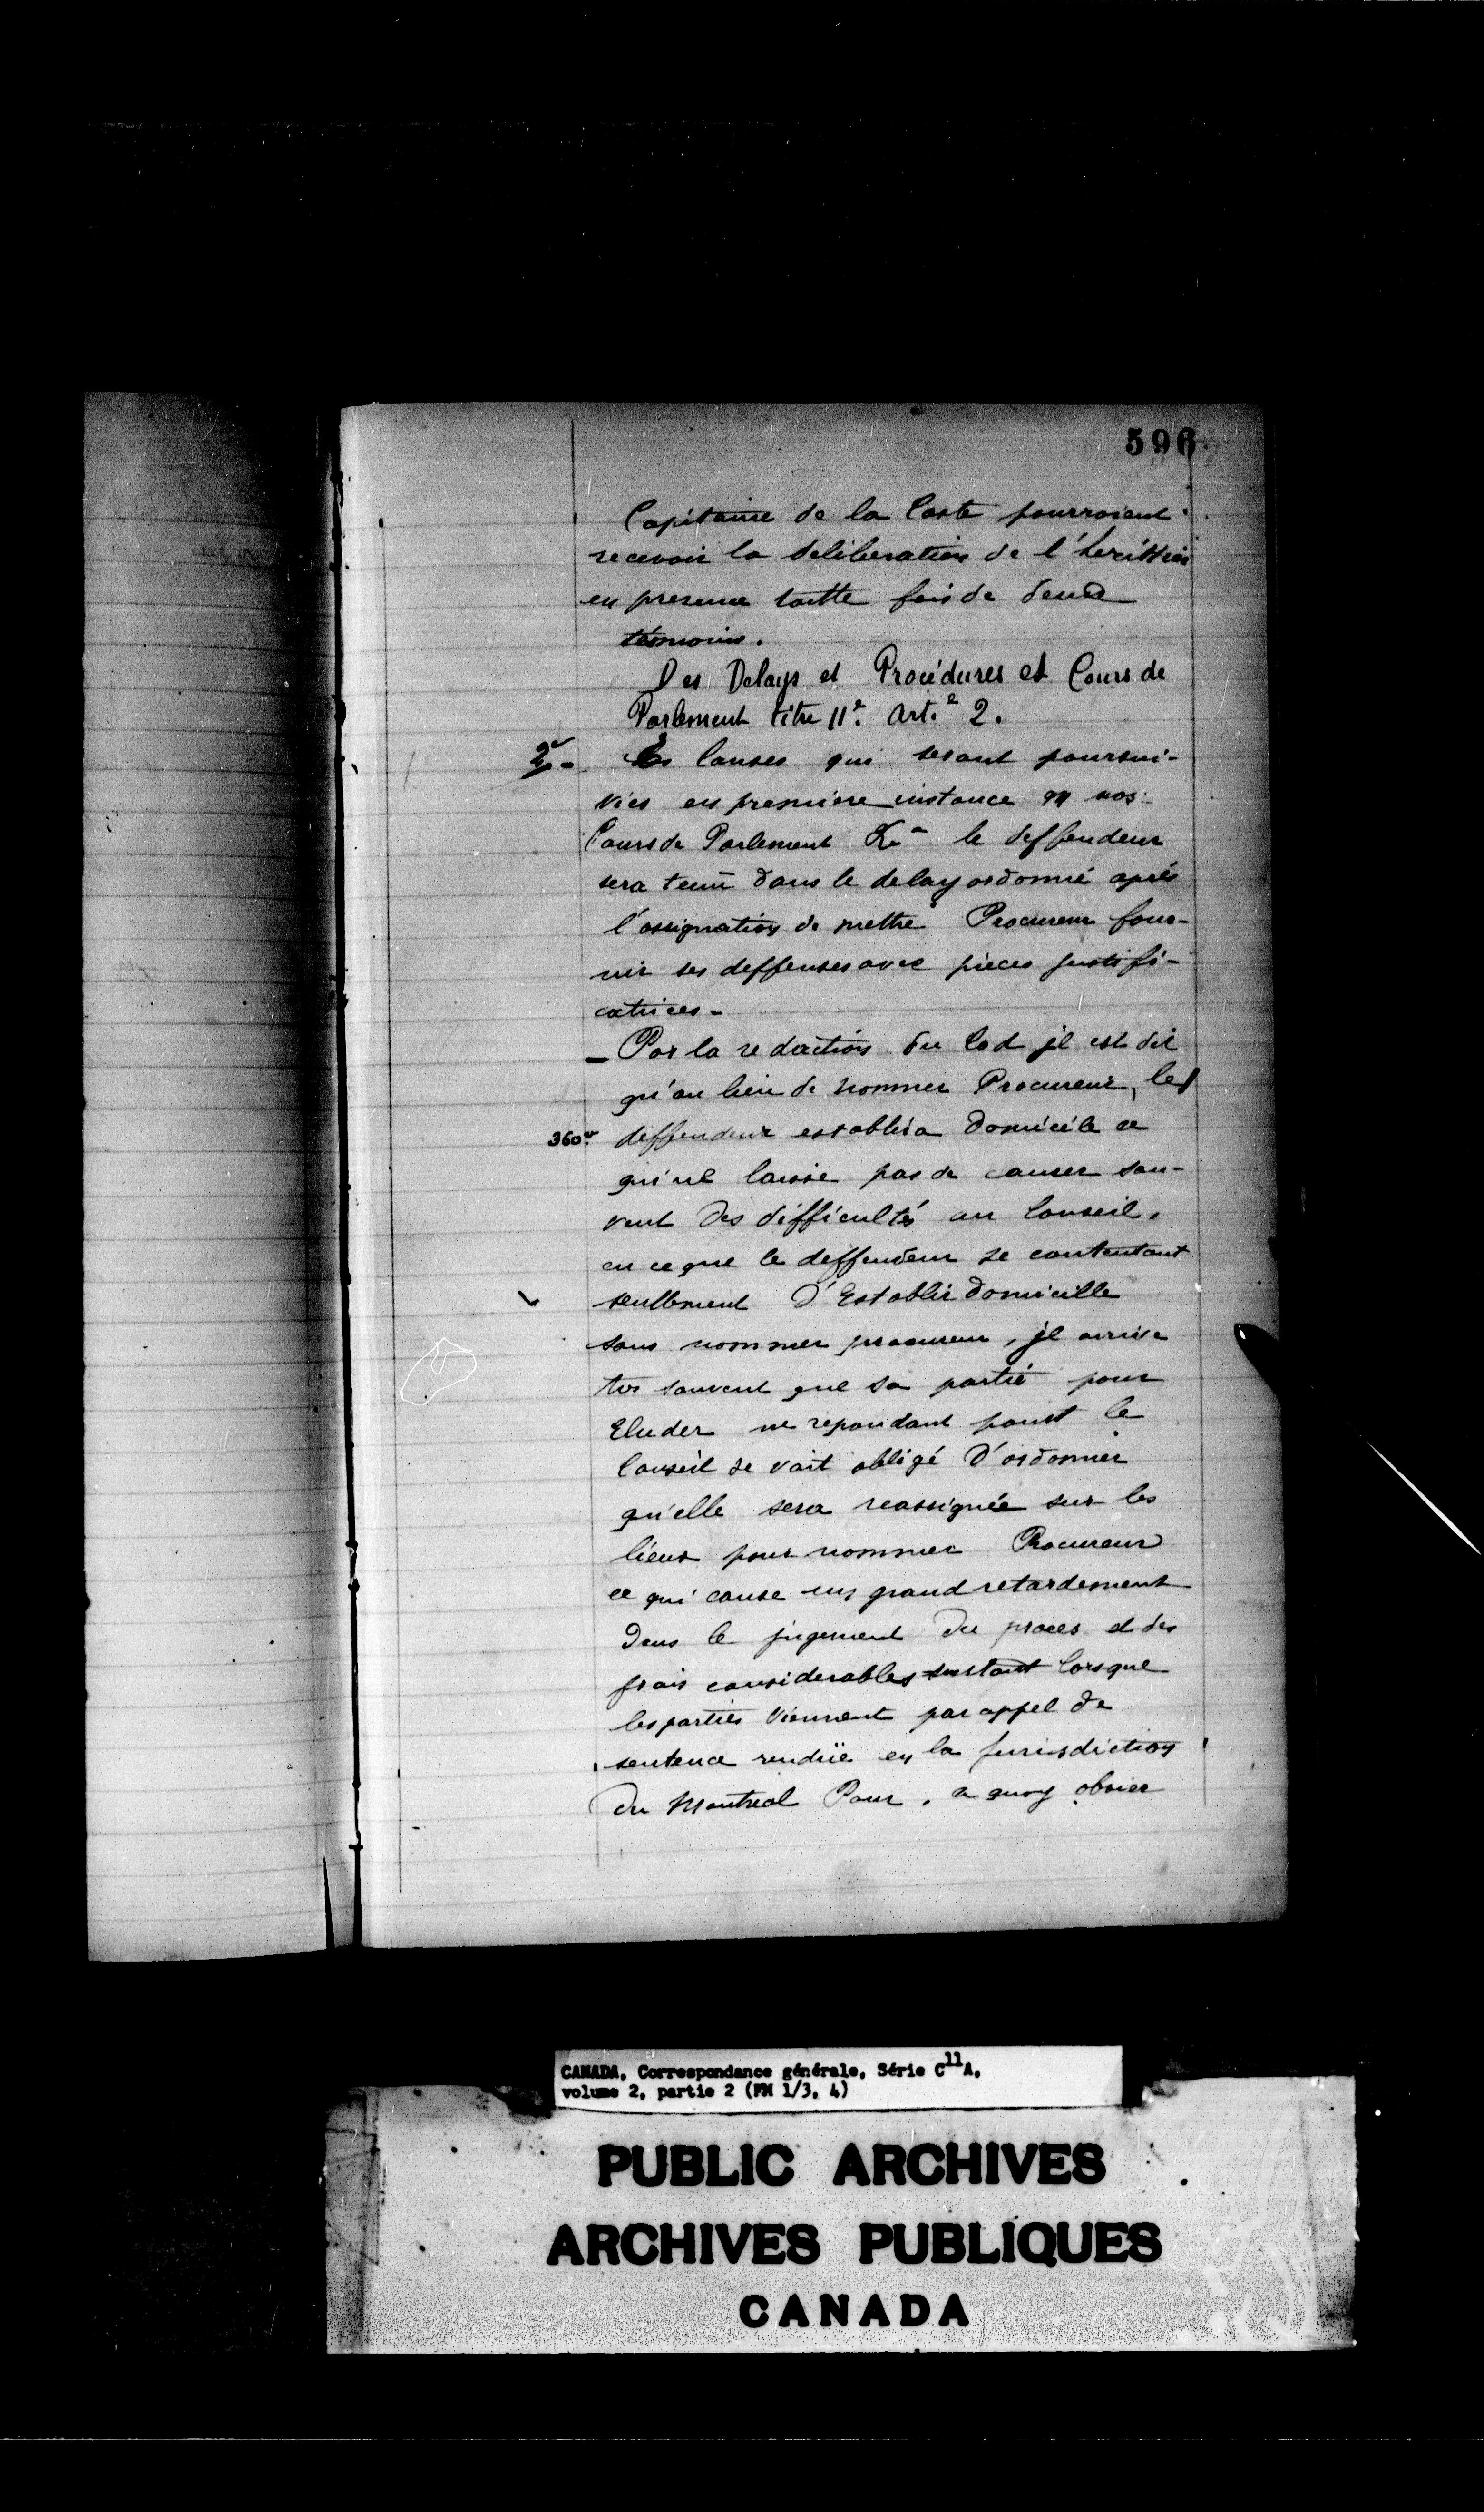 596
Capitaine de la Coste pourroient
recevoir la deliberation de l'herittier
en presence toutte fois de deux
témoins.
Des Delays et Procédures et Cours de
Parlement titre 11e. Art.e 2.
2e - Es Causes qui seront poursui-
vies en premiere instance en nos
Cours de Parlement &a le deffendeur
sera tenu dans le delay ordonné après
l'assignation de mettre Procureur four-
nir ses deffenses avec pieces justifi-
catrices -
- Par la redaction du Cod jl est dit
qu'au lieu de nommer Procureur, le
360v. deffendeur establira domicile ce
qui ne laisse pas de causer sou-
vent des difficultés au Conseil,
en ce que le deffendeur se contentant
seullement d'Establir domicille
sans nommer procureur, jl arrive
tres souvent que sa partie pour
Eluder ne repondant point le
Conseil se voit obligé D'ordonner
qu'elle sera reassignée sur les
lieux pour nommer Procureur
ce qui cause un grand retardement
Dans le jugement du proces et des
frais considerables surtout lorsque
les parties viennent par appel de
sentence rendüe en la Jurisdiction
du Montreal Pour, a quoy obvier
CANADA, Correspondance générale, Série C11A,
volume 2, partie 2 (FM 1/3, 4)
PUBLIC ARCHIVES
ARCHIVES PUBLIQUES
CANADA